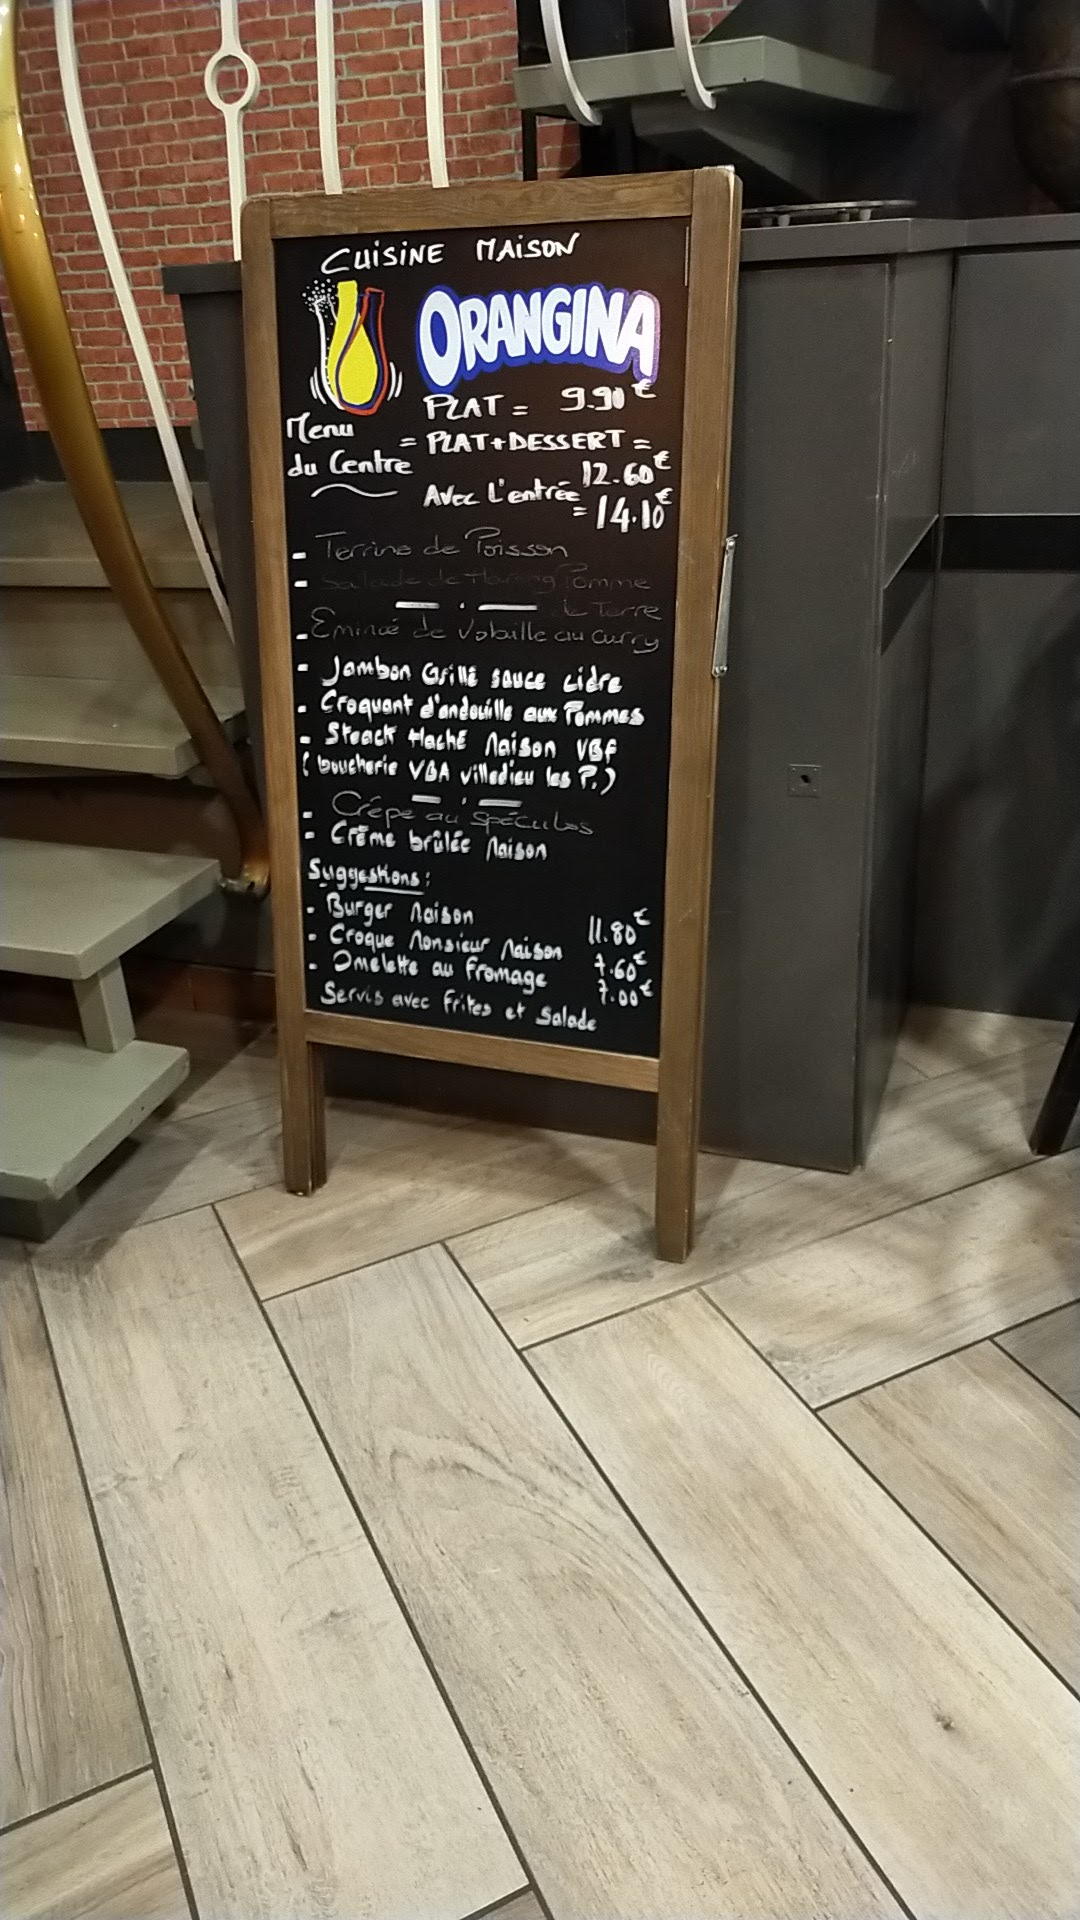 CUISINE MAISON
ORANGINA
PLAT = 9.90€
Menu du Centre = PLAT + DESSERT = 12.60€
Avec L'entrée = 14.10€
- Terrine de Poisson
- Salade de Hareng Pomme de Terre
- Emincé de Volaille au curry
- Jambon Grillé sauce cidre
- Croquant d'andouille aux Pommes
- Steack Haché Maison VBF
(boucherie VBA villedieu les P.)
- Crêpe au Spéculos
- Crème brûlée Maison
Suggestions :
- Burger Maison 11.80€
- Croque Monsieur Maison 7.60€
- Omelette au fromage 7.00€
Servis avec frites et salade